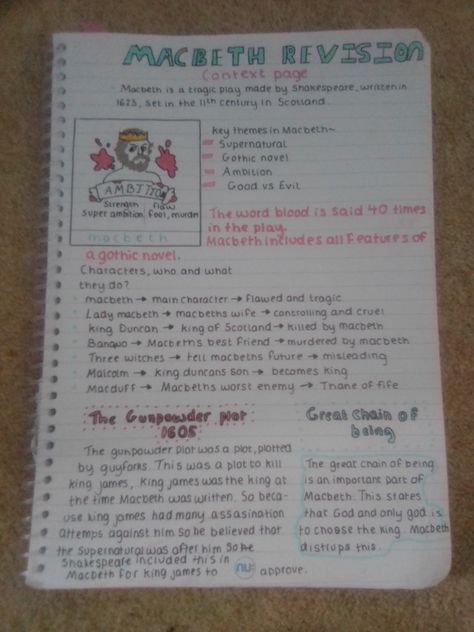 MACBETH REVISION
Context page
Macbeth is a tragic play made by Shakespeare, written in
1623, set in the 11th century in Scotland.
Key themes in Macbeth~
Supernatural
Gothic novel
Ambition
Good vs Evil
AMBITION
Strength flaw
Super ambition, fool, murdm
macbeth
The word blood is said 40 times
in the play.
Macbeth includes all features of
a gothic novel.
Characters, who and what
they do?
macbeth → main character → flawed and tragic
Lady macbeth → macbeths wife → controlling and cruel
King Duncan → king of Scotland → killed by macbeth
Banquo → Macbeths best friend → murdered by macbeth
Three witches → tell macbeths future → misleading
Malcolm → king duncans son → becomes king
Macduff → Macbeths worst enemy → Thane of fife
The Gunpowder plot
1605
The gunpowder plot was a plot, plotted
by guyfarks. This was a plot to kill
king james, King james was the king at
the time Macbeth was written. So beca-
use king james had many assasination
attemps against him so he believed that
the supernatural was after him so he
Shakespeare included this in
Macbeth for king james to nu: approve.
Great Chain of
being
The great chain of being
is an important part of
Macbeth. This states
that God and only god is
to choose the king. Macbeth
distrups this.